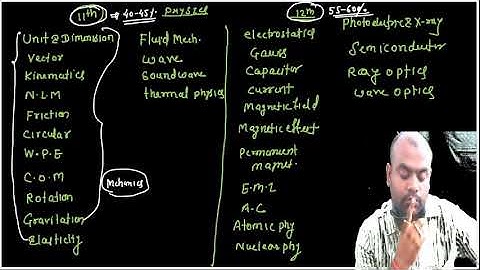 11th → 40-45% PHYSICS
Unit & Dimension
Vector
Kinematics
N.L.M
Friction
Circular
W.P.E
C.O.M
Rotation
Gravitation
Elasticity
Mechanics
Fluid Mech.
wave
Soundwave
thermal physics
12th → 55-60%
electrostatics
Gauss
Capacitor
Current
Magnetic field
Magnetic effect
Permanent
magnet.
E.M.I
A.C
Atomic phy
Nuclear phy
X-ray
Semiconductor
Ray optics
wave optics